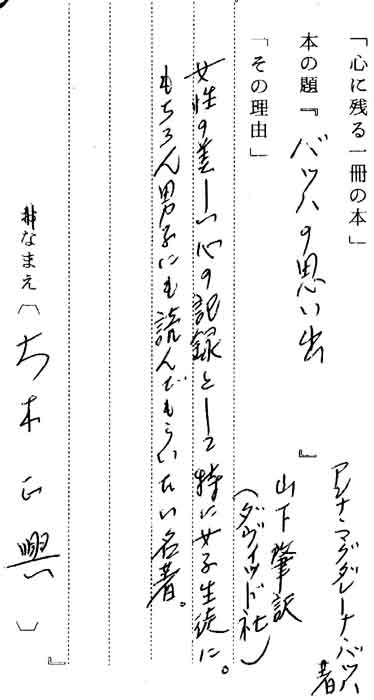 「心に残る一冊の本」
本の題『バッハの思い出』
アンナ・マグダレーナ・バッハ著
山下肇訳
(ダヴィッド社)
「その理由」
女性の美しい心の記録として特に女子生徒に。
もちろん男子にも読んでもらいたい名著。
おなまえ〔 木正興 〕
』